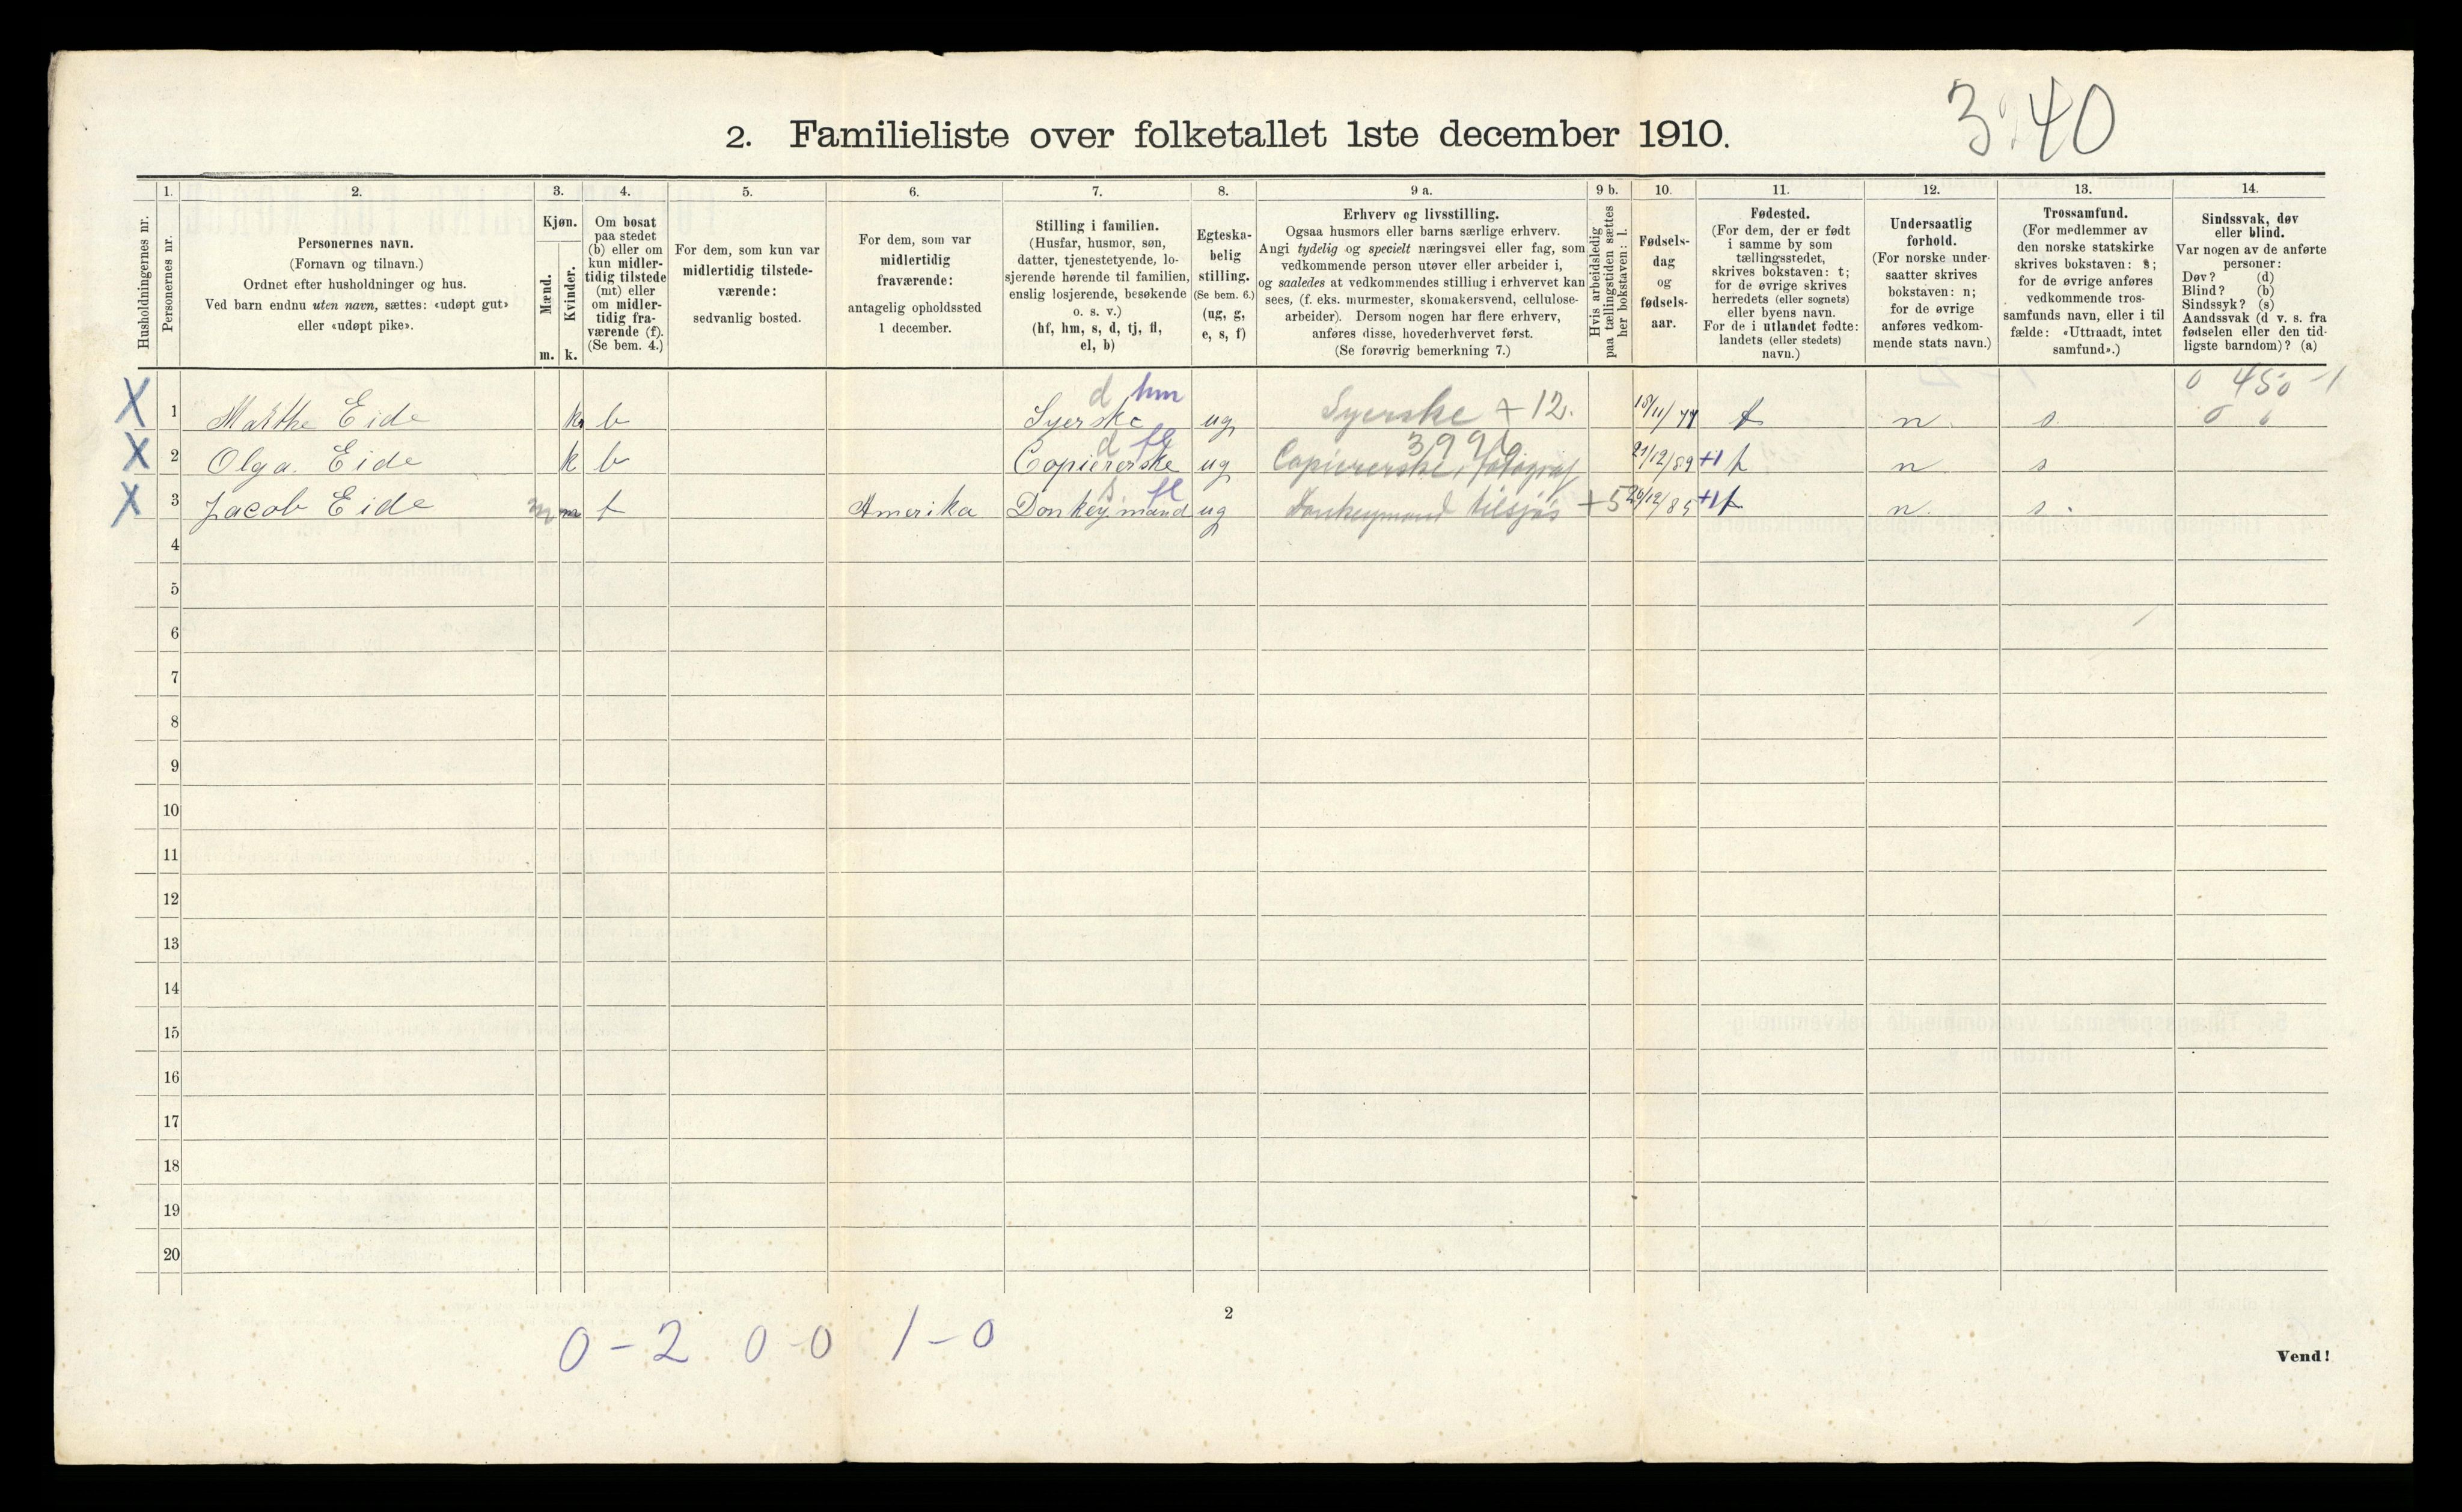 3.40
2. Familieliste over folketallet 1ste december 1910.
1. 2. 3. 4. 5. 6. 7. 8. 9 a. 9 b. 10. 11. 12. 13. 14.
Husholdningernes nr.
Personernes nr.
Personernes navn.
(Fornavn og tilnavn.)
Ordnet efter husholdninger og hus.
Ved barn endnu uten navn, sættes: «udøpt gut»
eller «udøpt pike».
Kjøn.
Mænd.
Kvinder.
m. k.
Om bosat
paa stedet
(b) eller om
kun midler-
tidig tilstede
(mt) eller
om midler-
tidig fra-
værende (f).
(Se bem. 4.)
For dem, som kun var
midlertidig tilstede-
værende:
sedvanlig bosted.
For dem, som var
midlertidig
fraværende:
antagelig opholdssted
1 december.
Stilling i familien.
(Husfar, husmor, søn,
datter, tjenestetyende, lo-
sjerende hørende til familien,
enslig losjerende, besøkende
o. s. v.)
(hf, hm, s, d, tj, fl,
el, b)
Egteska-
belig
stilling.
(Se bem. 6.)
(ug, g,
e, s, f)
Erhverv og livsstilling.
Ogsaa husmors eller barns særlige erhverv.
Angi tydelig og specielt næringsvei eller fag, som
vedkommende person utøver eller arbeider i,
og saaledes at vedkommendes stilling i erhvervet kan
sees, (f. eks. murmester, skomakersvend, cellulose-
arbeider). Dersom nogen har flere erhverv,
anføres disse, hovederhvervet først.
(Se forøvrig bemerkning 7.)
Hvis arbeidsledig
paa tællingstiden sættes
her bokstaven: l.
Fødsels-
dag
og
fødsels-
aar.
Fødested.
(For dem, der er født
i samme by som
tællingsstedet,
skrives bokstaven: t;
for de øvrige skrives
herredets (eller sognets)
eller byens navn.
For de i utlandet fødte:
landets (eller stedets)
navn.)
Undersaatlig
forhold.
(For norske under-
saatter skrives
bokstaven: n;
for de øvrige
anføres vedkom-
mende stats navn.)
Trossamfund.
(For medlemmer av
den norske statskirke
skrives bokstaven: s;
for de øvrige anføres
vedkommende tros-
samfunds navn, eller i til
fælde: «Uttraadt, intet
samfund».)
Sindssvak, døv
eller blind.
Var nogen av de anførte
personer:
Døv? (d)
Blind? (b)
Sindssyk? (s)
Aandssvak (d v. s. fra
fødselen eller den tid-
ligste barndom)? (a)
d hm
X 1 Marthe Eide k b Syerske ug Syerske + 12. t n. s.
d fl
X 2 Olga Eide k b Copiererske ug Copiererske i fotograf 21/12/89 +1 t n. s
s. fl
X 3 Jacob Eide m f Amerika Donkeymand ug Donkeymand tilsjøs +5 +1 t n. s.
4
5
6
7
8
9
10
11
12
13
14
15
16
17
18
19
20
2
0-2 0-0 1-0
Vend!